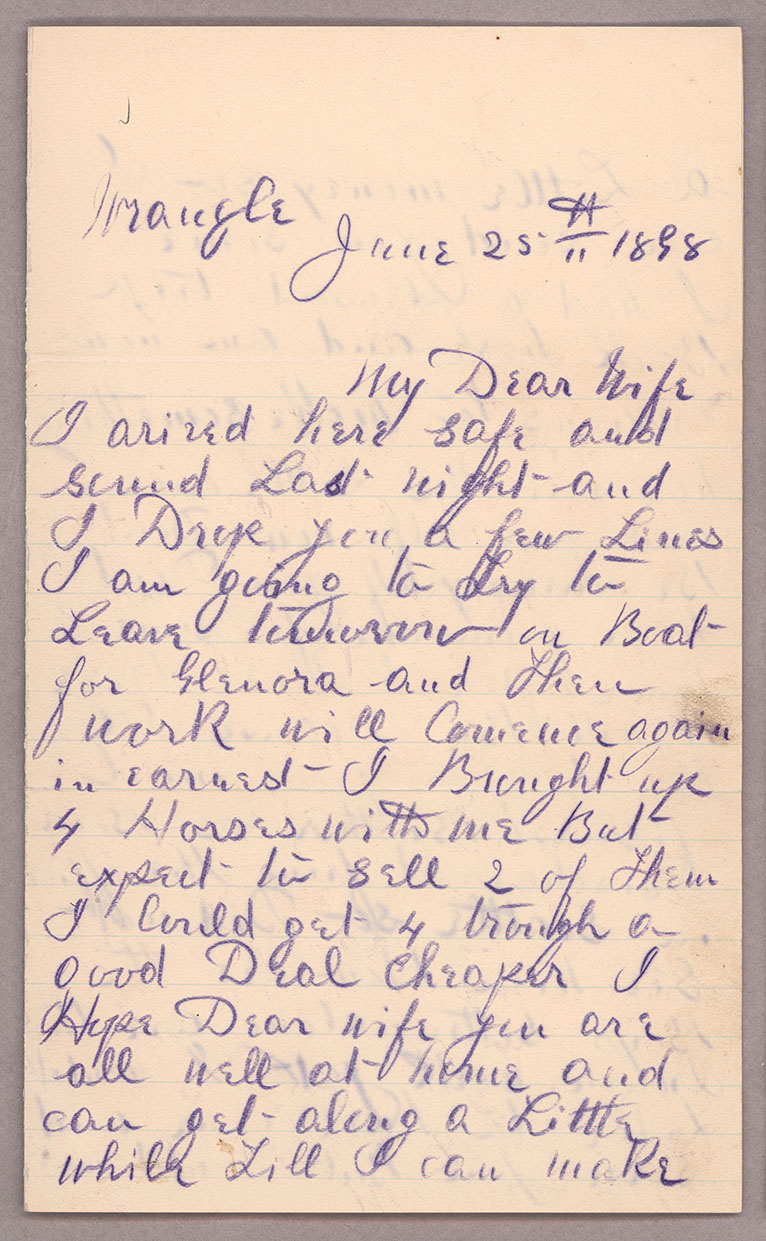 Wrangle
June 25th 1898
My Dear Wife
I arived here safe and
sound Last night and
I Drop you a few Lines
I am going to try to
Leave tomorrow on Boat
for Glenora and then
work will Comence again
in earnest I Brought up
4 Horses with me But
expect to sell 2 of them
I Could get 4 trough a
good Deal Cheaper I
Hope Dear wife you are
all well at home and
can get along a Little
while Till I can make